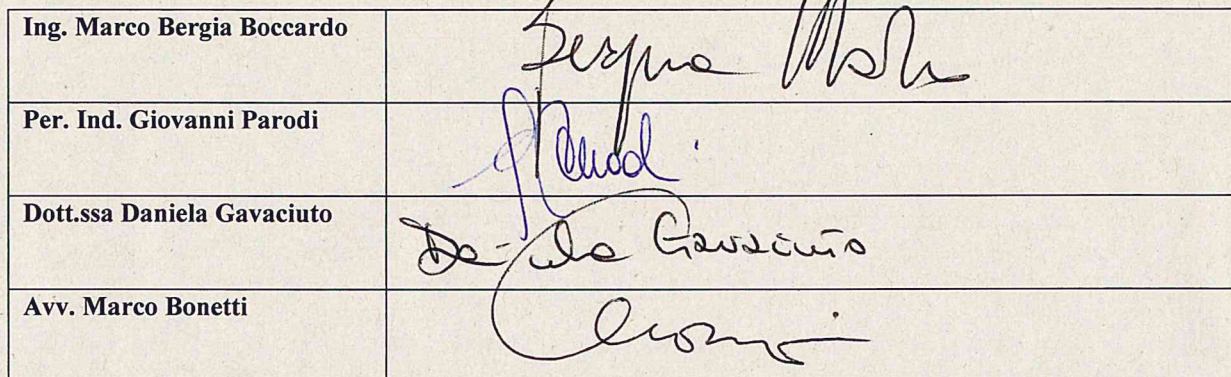 Ing. Marco Bergia Boccardo
Per. Ind. Giovanni Parodi
Parodi
Dott.ssa Daniela Gavaciuto
Daniela Gavaciuto
Avv. Marco Bonetti